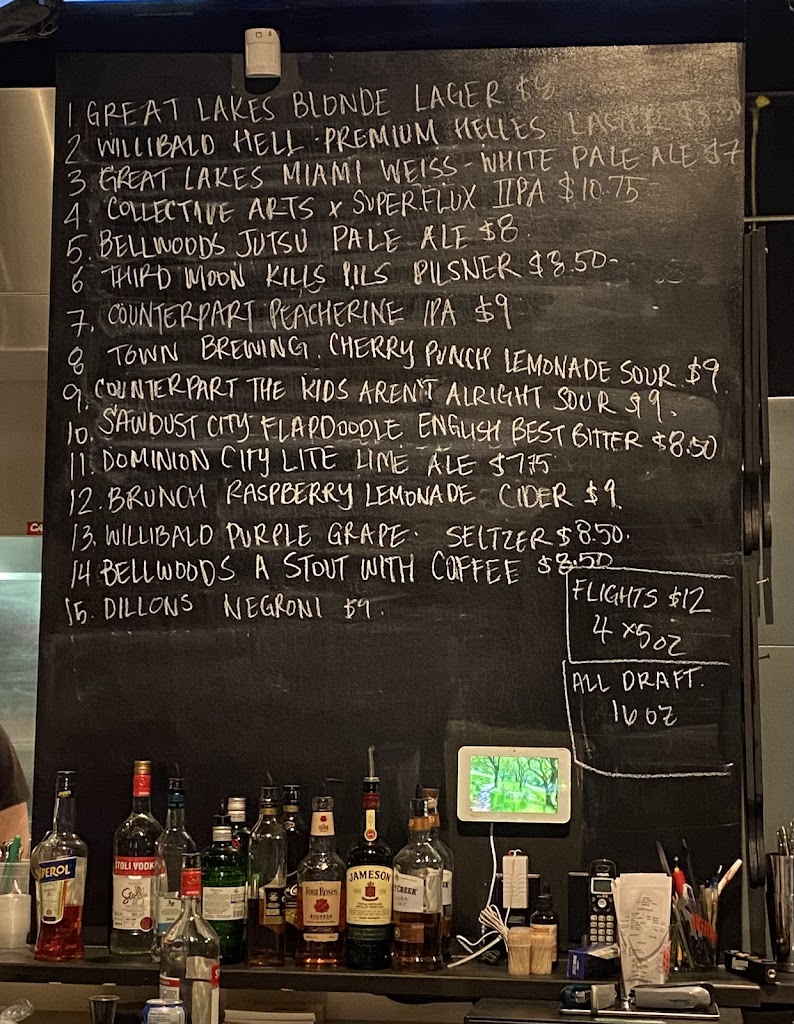 1 GREAT LAKES BLONDE LAGER $8
2 WILLIBALD HELL - PREMIUM HELLES LAGER $8.50
3. GREAT LAKES MIAMI WEISS - WHITE PALE ALE $7
4. COLLECTIVE ARTS x SUPERFLUX IIPA $10.75
5. BELLWOODS JUTSU PALE ALE $8
6 THIRD MOON KILLS PILS PILSNER $8.50-
7. COUNTERPART PEACHERINE IPA $9
8 TOWN BREWING. CHERRY PUNCH LEMONADE SOUR $9
9. COUNTERPART THE KIDS AREN'T ALRIGHT SOUR $9.
10. SAWDUST CITY FLAPDOODLE ENGLISH BEST BITTER $8.50
11. DOMINION CITY LITE LIME ALE $7.75
12. BRUNCH RASPBERRY LEMONADE CIDER $9.
13. WILLIBALD PURPLE GRAPE. SELTZER $8.50.
14 BELLWOODS A STOUT WITH COFFEE $8.50
15. DILLONS NEGRONI $9.
FLIGHTS $12
4 x5oz
ALL DRAFT.
16 oz
STOLI VODK
Stoli
Four Roses
BOURBON
JAMESON
CREEK